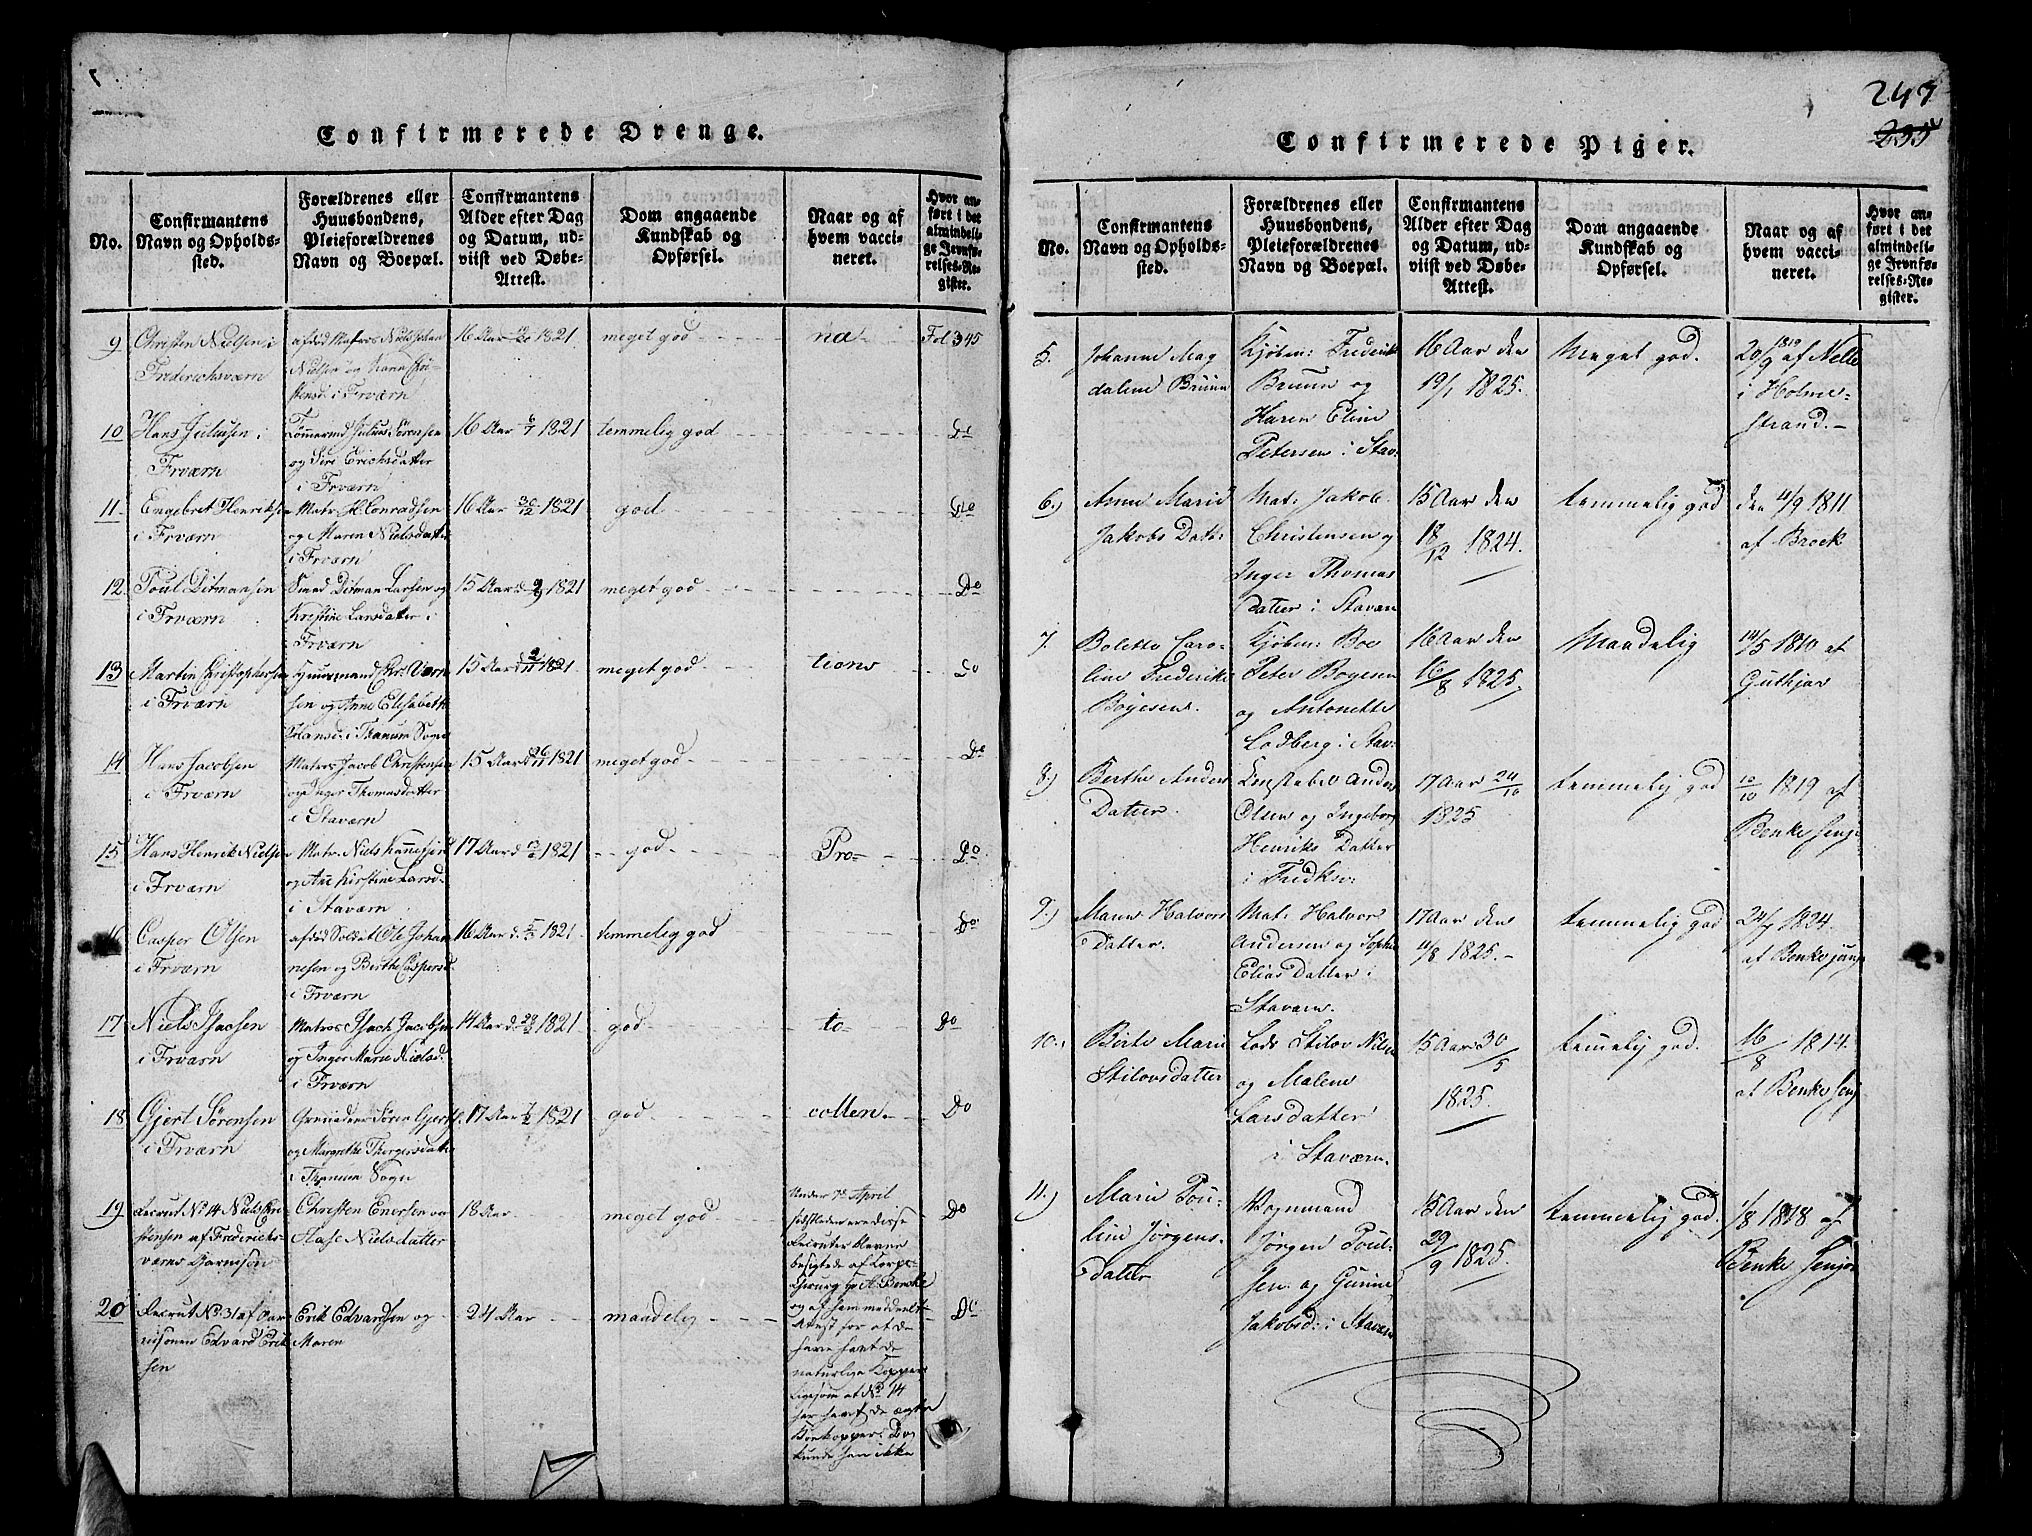 Confirmerede Drenge.
No.
Confirmantens
Navn og Opholds-
sted.
Forældrenes eller
Huusbondens,
Pleieforældrenes
Navn og Boepæl.
Confirmantens
Alder efter Dag
og Datum, ud-
viist ved Døbe-
Attest.
Dom angaaende
Kundskab og
Opførsel.
Naar og af
hvem vacci-
neret.
Hvor an-
ført i det
almindeli-
ge Jevnfø-
relses-Re-
gister.
9
Christen Nielsen i
Frederichsværn
afdød Matros Niels Johan
Nielsen og Karn Chri-
stensd: i Frværn
16 Aar 1821
meget god
na
Fol 345
10
Hans Juliusen i
Frværn
Tømmermd Julius Sørensen
og Siri Erichsdatter
i Frværn
16 Aar 6/7 1821
temmelig god
Do
11
Engebret Henriksen
i Frværn
Matr: H. Conradsen
og Maren Nielsdatter
i Frværn
16 Aar 30/12 1821
god
Do
12
Poul Ditmansen
i Frværn
Smed Ditman Larsen og
Kristine Larsdatter i
Frværn
15 Aar d. 2/9 1821
meget god
Do
13
Martin Christophersen
i Frværn
Huusmand Chr:Værn
sen og Anne Elisabeth
Hansd: i Tanum Sogn
15 Aar d 2/11 1821
meget god
tions
Do
14
Hans Jacobsen
i Frværn
Matros Jacob Christensen
og Inger Thomasdatter
i Staværn
15 Aar d 26/11 1821
meget god
Do
15
Hans Henrik Nielsen
i Frværn
Matr. Niels Hannessen
og Ane Kirstine Larsd-
i Staværn
17 Aar d 1821
god
Pro
Do
16
Casper Olsen
i Frværn
afdød Soldat Ole Johan
nesen og Berthe Caspersd.
i Frværn
16 Aar d. 1821
temmelig god
Do
17
Niels Isacsen
i Frværn
Matros Isach Jacobsen
og Inger Marie Nielsd.
i Frværn
14 Aar d. 1821
god
to
Do
18
Gjert Sørensen
i Frværn
Grenadeer Søren Gjerts.
og Margrethe Thorgersdatter
i Thanum Sogn
17 Aar 7/2 1821
god
collen
Do
19
Recrud No 14 Niels Chri-
stensen af Frederichs-
værns Garnison
Christen Enersen og
Hase Nielsdatter
18 Aar
meget god
Under 7de April
sidstleden ere disse
Recruter blevne
besigtede af Corps-
Chirurg Hr A. Bencke
og af ham meddeelt
Attest for at de
have havt de
naturlige Kopper
ligesom at No 14
har havt de ægte
Koekopper. Do
kunde han ikke
Do
20
Recrut No 31 af Gar
nisonen Edvard Erik
sen
Erik Edvardsen og
Maren
24 Aar
maadelig
Do
247
255
Confirmerede Piger.
No.
Confirmantens
Navn og Opholds-
sted.
Forældrenes eller
Huusbondens,
Pleieforældrenes
Navn og Boepæl.
Confirmantens
Alder efter Dag
og Datum, ud-
viist ved Døbe-
Attest.
Dom angaaende
Kundskab og
Opførsel.
Naar og af
hvem vacci-
neret.
Hvor an-
ført i det
almindeli-
ge Jevnfø-
relses-Re-
gister.
5.
Johanne Mag
dalene Bruun
Kjøbm: Frederik
Bruun og
Karen Eline
Petersen i Stav:
16 Aar den
19/1 1825.
Meget god.
20/9 1819 af Nelle
i Holme-
strand.
6.)
Anne Marie
Jakobs Datter
Mat: Jakob
Christensen og
Inger Thomas
Datter i Staværn
15 Aar den
18/12 1824.
temmelig god
den 4/9 1811
af Brock
7.
Bolette Caro-
line Frederikke
Bøyesen.
Kjøbm: Boe
Peter Boyesen
og Antonette
Lodberg i Stav:
16 Aar den
16/8 1825.
Maadelig
14/5 1810 af
Guthjar
8.)
Berthe Anders
Datter.
Constabel Anders
Olsen og Ingeborg
Henriks Datter
i Fredksv:
17 Aar 24/10
1825
temmelig god
12/10 1819 af
Benke Senj:
9.)
Maren Halvors
Datter.
Mat: Halvor
Andersen og Sophie
Elias Datter i
Staværn.
17 Aar den
11/8 1825.
temmelig god
24/7 1824.
af Benke jun:
10.
Birte Marie
Stilovsdatter
Lods Stilov Nilsen
og Malene
Larsdatter
i Staværn.
15 Aar 30/5
1825.
temelig god.
16/8 1814.
af Benke Senj
11.)
Marie Pou-
line Jørgens-
Datter
Vognmand
Jørgen Poul-
sen og Gunne
Jakobsd: i Staværn
15 Aar den
29/9 1825.
temmelig god.
1/8 1818 af
Benke Senjor